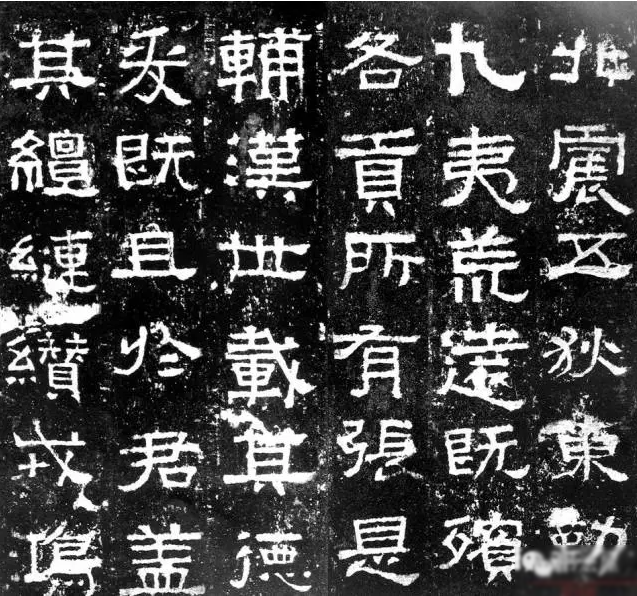 北震五狄東勤
九夷荒遠既殯
各貢所有張是
輔漢世載其德
爰既且於君盖
其繵縺纘戎鴻